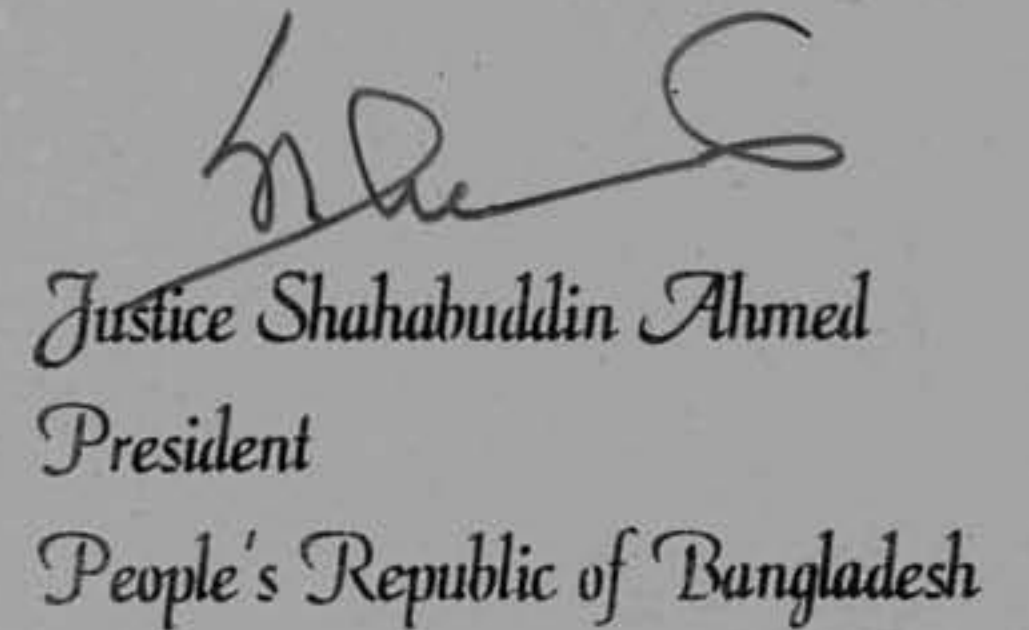 Justice Shahabuddin Ahmed
President
People's Republic of Bangladesh